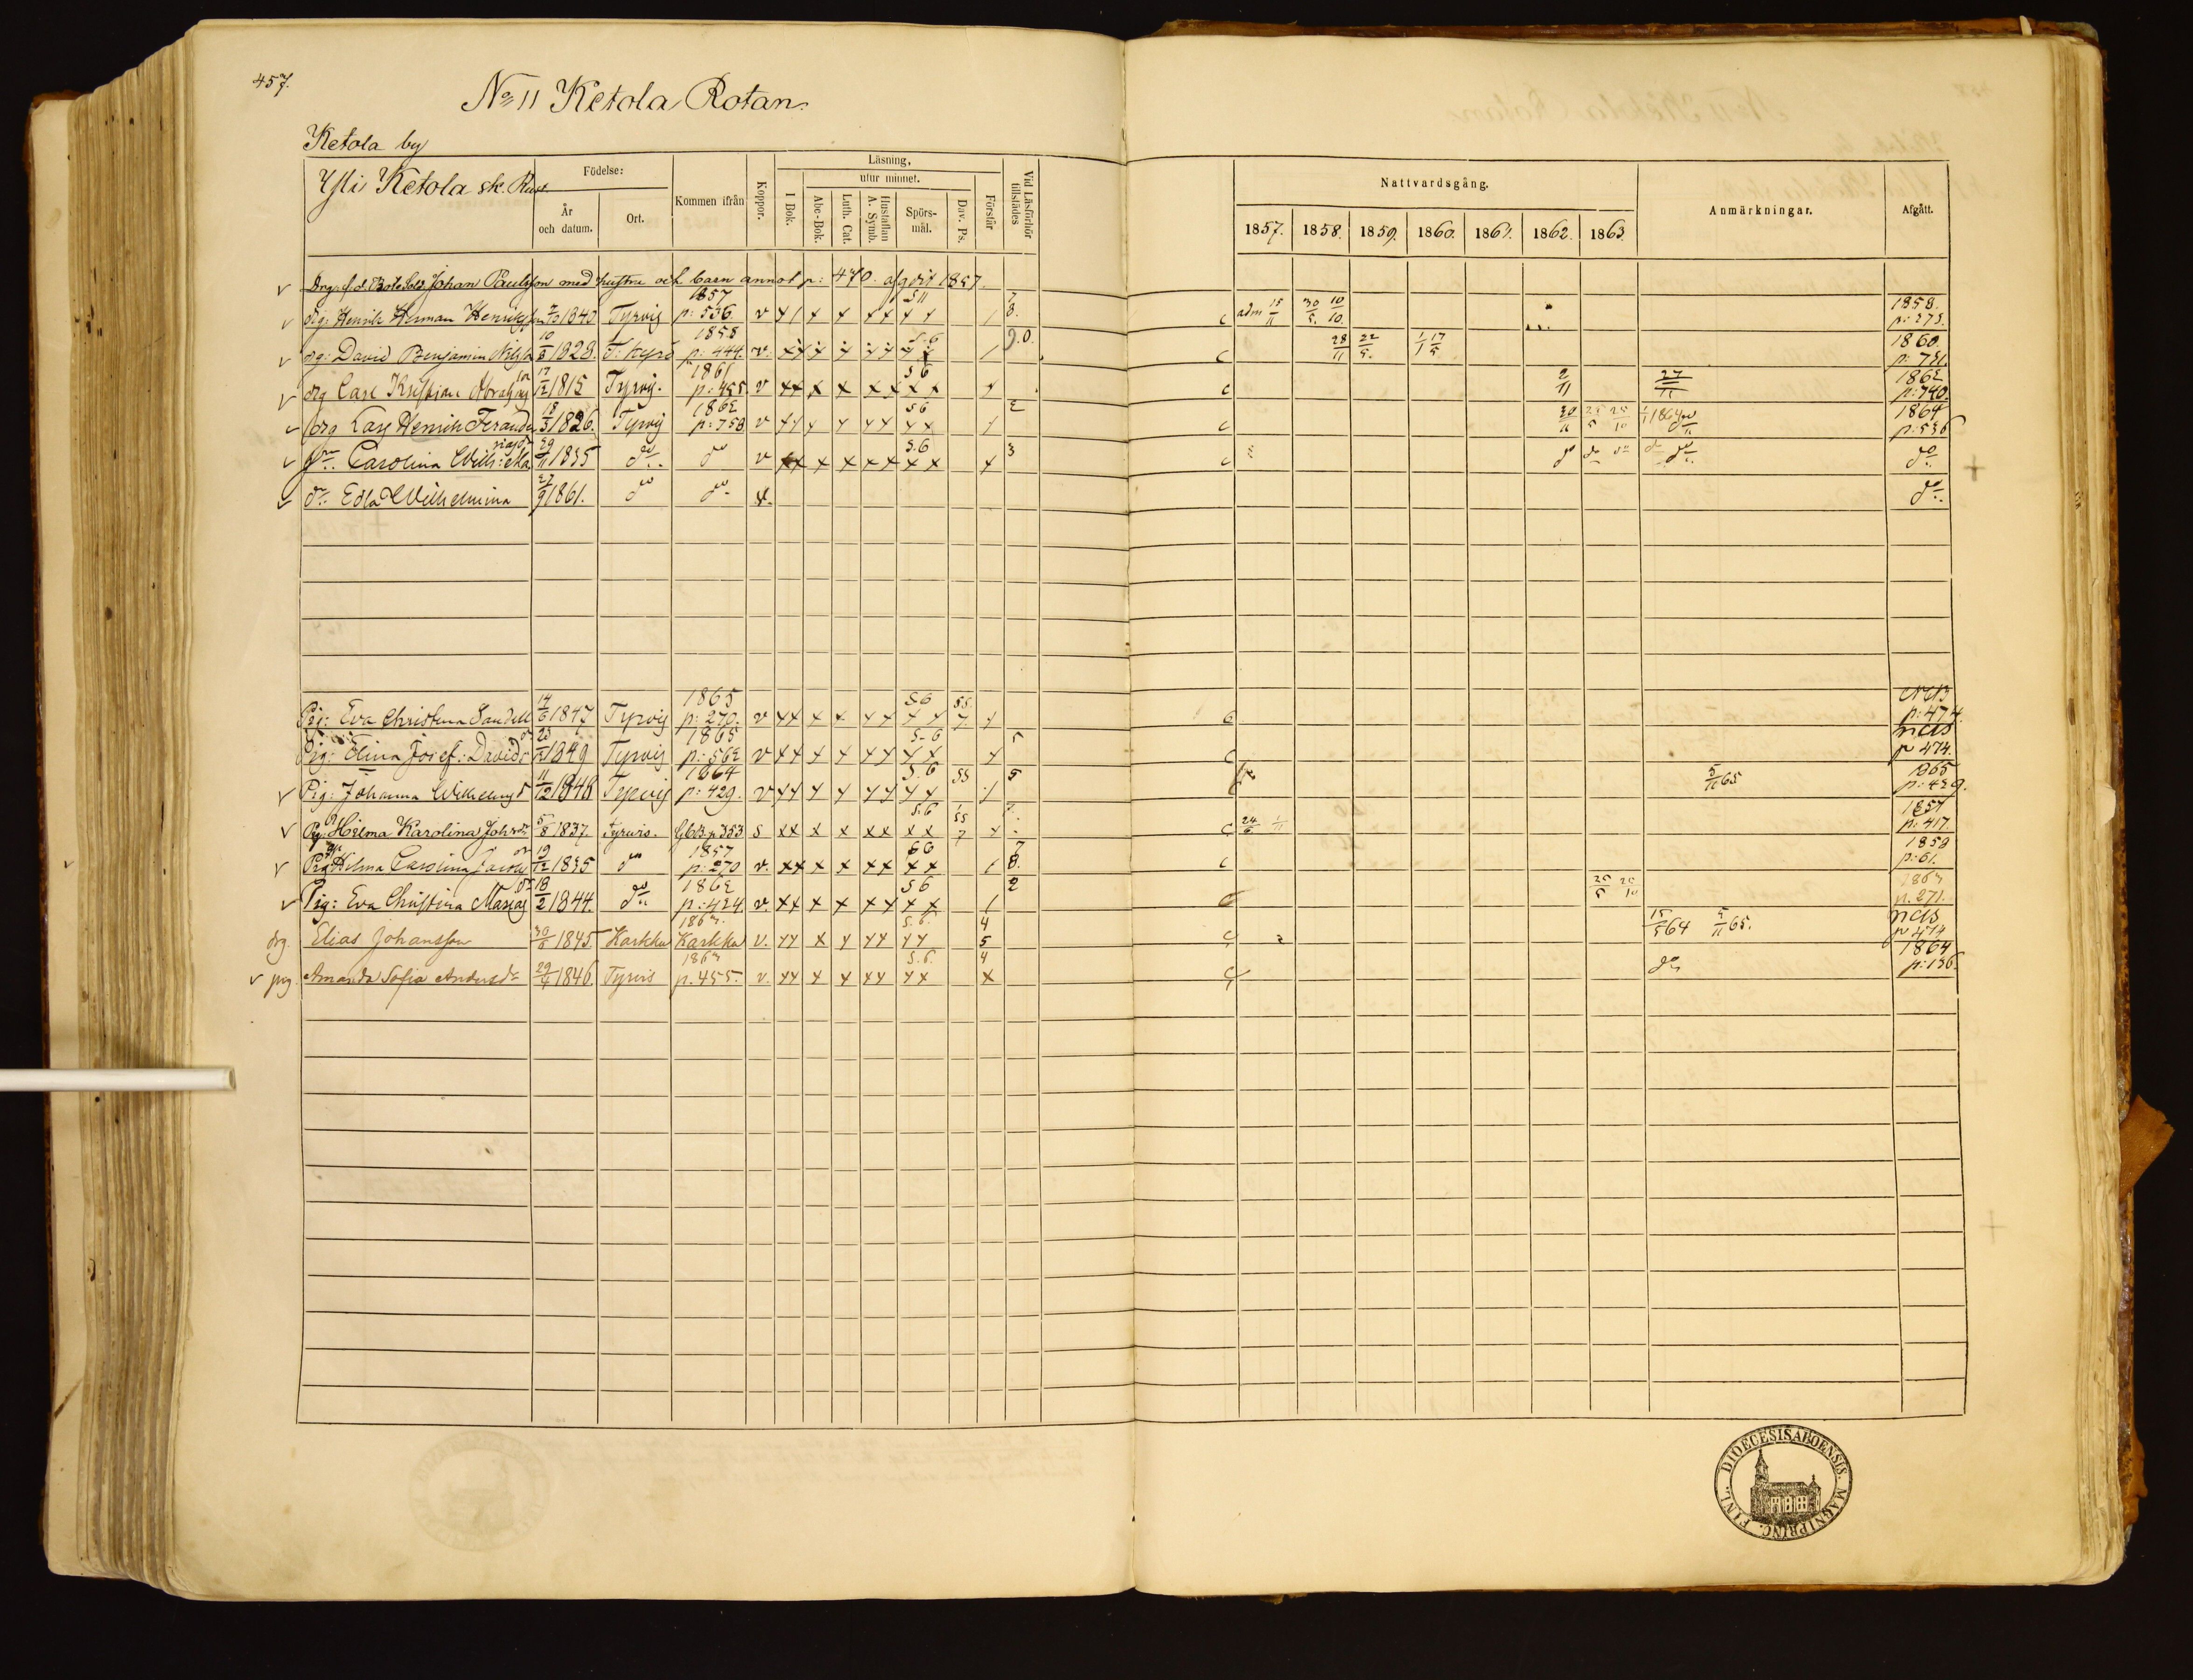 457.
No 11 Ketola Rotan.
Ketola by
Yli Ketola sk. Rust
Födelse:
År och datum.
Ort.
Kommen ifrån
Koppor.
Läsning,
utur minnet.
I Bok.
Abc-Bok.
Luth. Cat.
Hustaflan A. Symb.
Spörs-mål.
Dav. Ps.
Förstår
Vid Läsförhör tillstädes
Nattvardsgång.
1857. 1858. 1859. 1860. 1861. 1862. 1863.
Anmärkningar.
Afgått.
Johan Paulsson med hustru och barn annot p: 470. afgått 1857.
drg: Henrik Herman Henriksson 1840 Tyrvis 1857 p: 536. v 511 7 8. c adm 15/11 30/5. 10/10. 1858. p: 273.
drg: David Benjamin 10/3 1828. T. Kyrö 1858 p: 444. v. 5.6 9.0. c 28/11 22/5. 17/5 1860. p: 731.
drg Carl Kristian 17/12 1815 Tyrvis. 1861 p: 455. v 56 c 2/11 27/11 1862 p: 740.
drg Carl Henrik 18/3 1826. Tyrvis 1862 p: 758 v 56 2 c 30/11 25/5 25/10 1864 1864 p: 536
Carolina Wilh: 29/11 1835 do do v 5.6 3 c do do do do do
dr. Edla Wilhelmina 27/9 1861. do do v. do
Pig: Eva Christina Sandell 14/6 1847 Tyrvis 1865 p: 270. v 56 55 7 c NB p: 474.
Pig: Elina Josef: Davids dr 1849 Tyrvis 1865 p: 562 v 5-6 5 c p 474.
Pig: Johanna Wilhelms dr 11/12 1848 Tyrvis 1864 p: 429. v 5.6 55 5 5/11 65 1865 p: 429.
Pig. Hilma Karolina Joh. dr 5/8 1837 Tyrvis. GCB p 353 s 5.6 55 7 c 24/5 1/11 1857 p: 417.
Pig Helma Carolina 19/12 1835 do 1857 p: 270 v. 66 7 8. c 1858 p: 61.
Pig: Eva Christina Marias dr 18/2 1844. do 1862 p: 424. v. 56 2 c 25/5 25/10 1863 p. 271.
drg. Elias Johansson 30/8 1845. Karkku 1863. Karkku v. 5.6. 4 5 c 15/5 64 5/11 65. p 474
pig. Amanda Sofia Andersdr 29/4 1846. Tyrvis 1863 p. 455. v. 5.6. 4 c do 1864 p: 136.
DIOECESIS ABOENSIS. MAGNI PRINC. FINL.